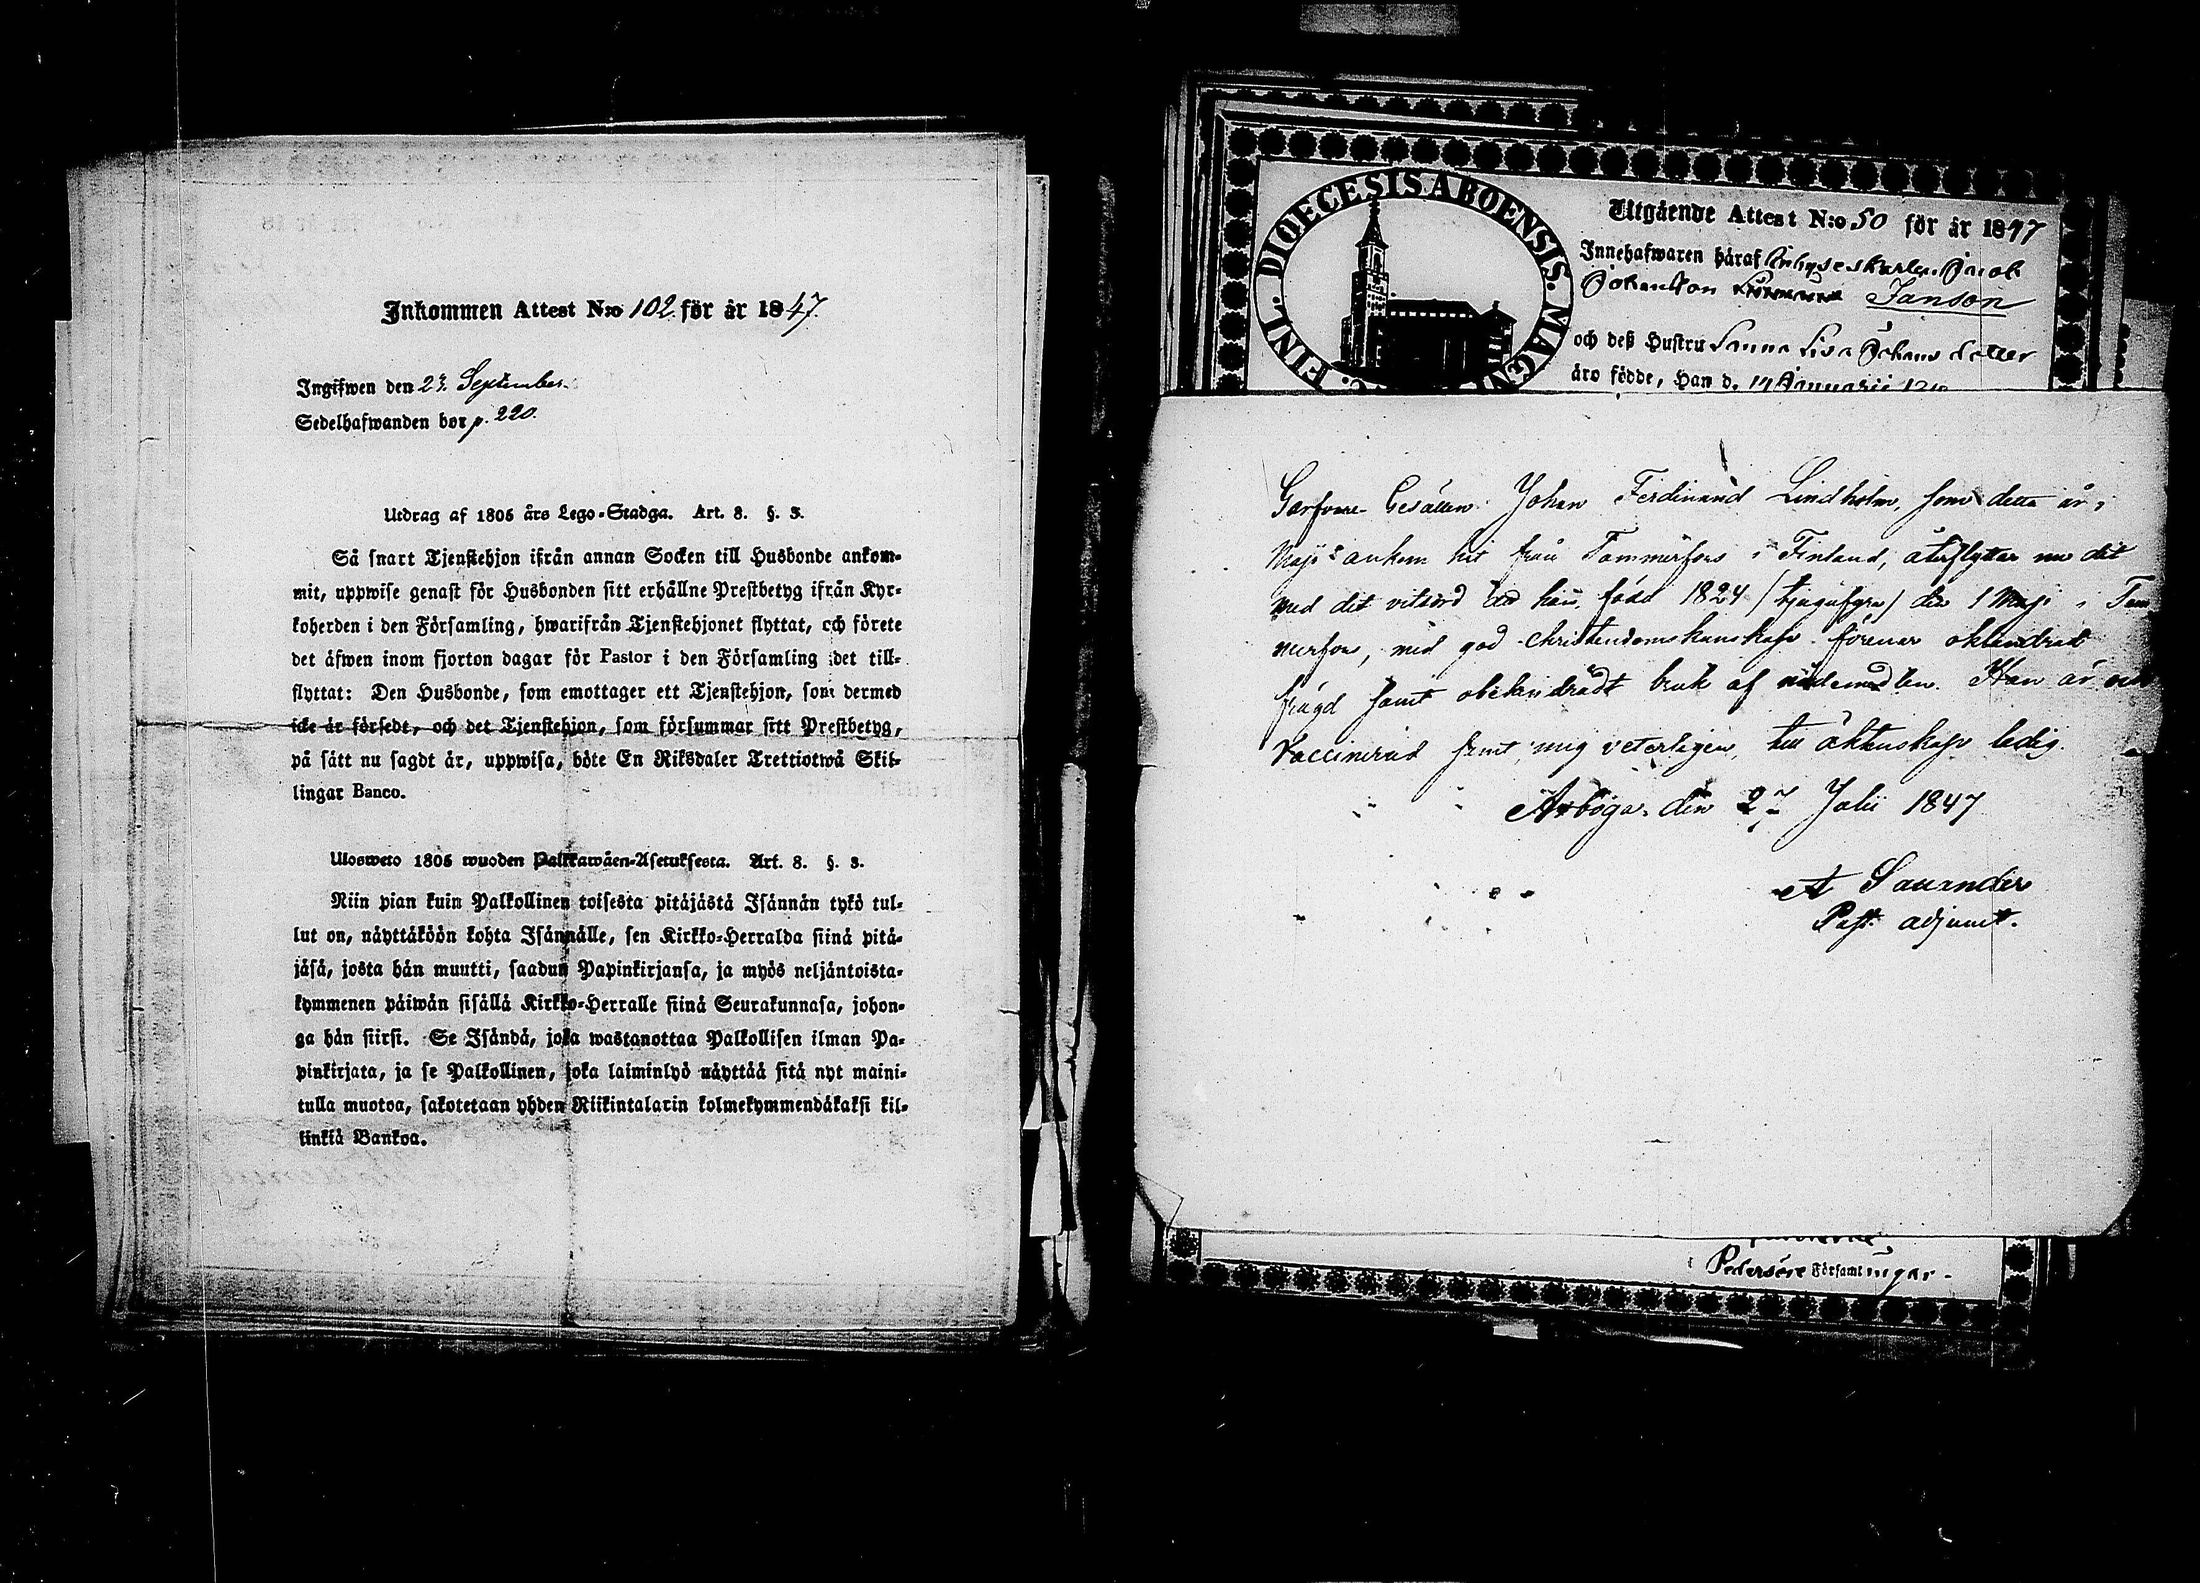 Inkommen Attest N:o 102 för år 1847.
Ingifwen den 27. September
Sedelhafwanden bor p. 220.
Utdrag af 1805 års Lego-Stadga. Art. 8. §. 3.
Så snart Tjenstehjon ifrån annan Socken till Husbonde ankom-
mit, uppwise genast för Husbonden sitt erhållne Prestbetyg ifrån Kyr-
koherden i den Församling, hwarifrån Tjenstehjonet flyttat, och förete
det äfwen inom fjorton dagar för Pastor i den Församling det till-
flyttat: Den Husbonde, som emottager ett Tjenstehjon, som dermed
icke är försedt, och det Tjenstehjon, som försummar sitt Prestbetyg,
på sätt nu sagdt är, uppwisa, böte En Riksdaler Trettiotwå Skil-
lingar Banco.
Ulosweto 1805 wuoden Palkkawäen-Asetuksesta. Art. 8. §. 3.
Niin pian kuin Palkollinen toisesta pitäjästä Isännän tykö tul-
lut on, näyttäköön kohta Isännälle, sen Kirkko-Herralda siinä pitä-
jäsä, josta hän muutti, saadun Papinkirjansa, ja myös neljäntoista-
kymmenen päiwän sisällä Kirkko-Herralle siinä Seurakunnasa, johon-
ga hän siirsi. Se Isändä, joka wastanottaa Palkollisen ilman Pa-
pinkirjata, ja se Palkollinen, joka laiminlyö näyttää sitä nyt maini-
tulla muotoa, sakotetaan yhden Riikintalarin kolmekymmendäkaksi kil-
linkiä Bankoa.
FINL. DIOECESIS ABOENSIS. MAGN
Utgående Attest N:o 50 för år 1847
Innehafwaren häraf Inhyseskarlen Jacob
Johansson Janson
och deß Hustru Sanna Lisa Johansdotter
äro födde, Han d. 17 Januarii
Garfvare Gesällen Johan Ferdinand Lindholm, som detta år i
Maji ankom hit från Tammerfors i Finland, återflyttar nu dit
med det vitsord att han, född 1824 /tjugufyra/ den 1 Maji i Tam
merfors, med god christendomskunskap förenar oklandrad
frägd samt obehindradt bruk af nådemedlen. Han är och
Vaccinerad samt, mig veterligen, till äktenskap ledig.
Arboga den 27 Julii 1847
A Sauander
Past. adjunct.
Pedersöre Församlingar.